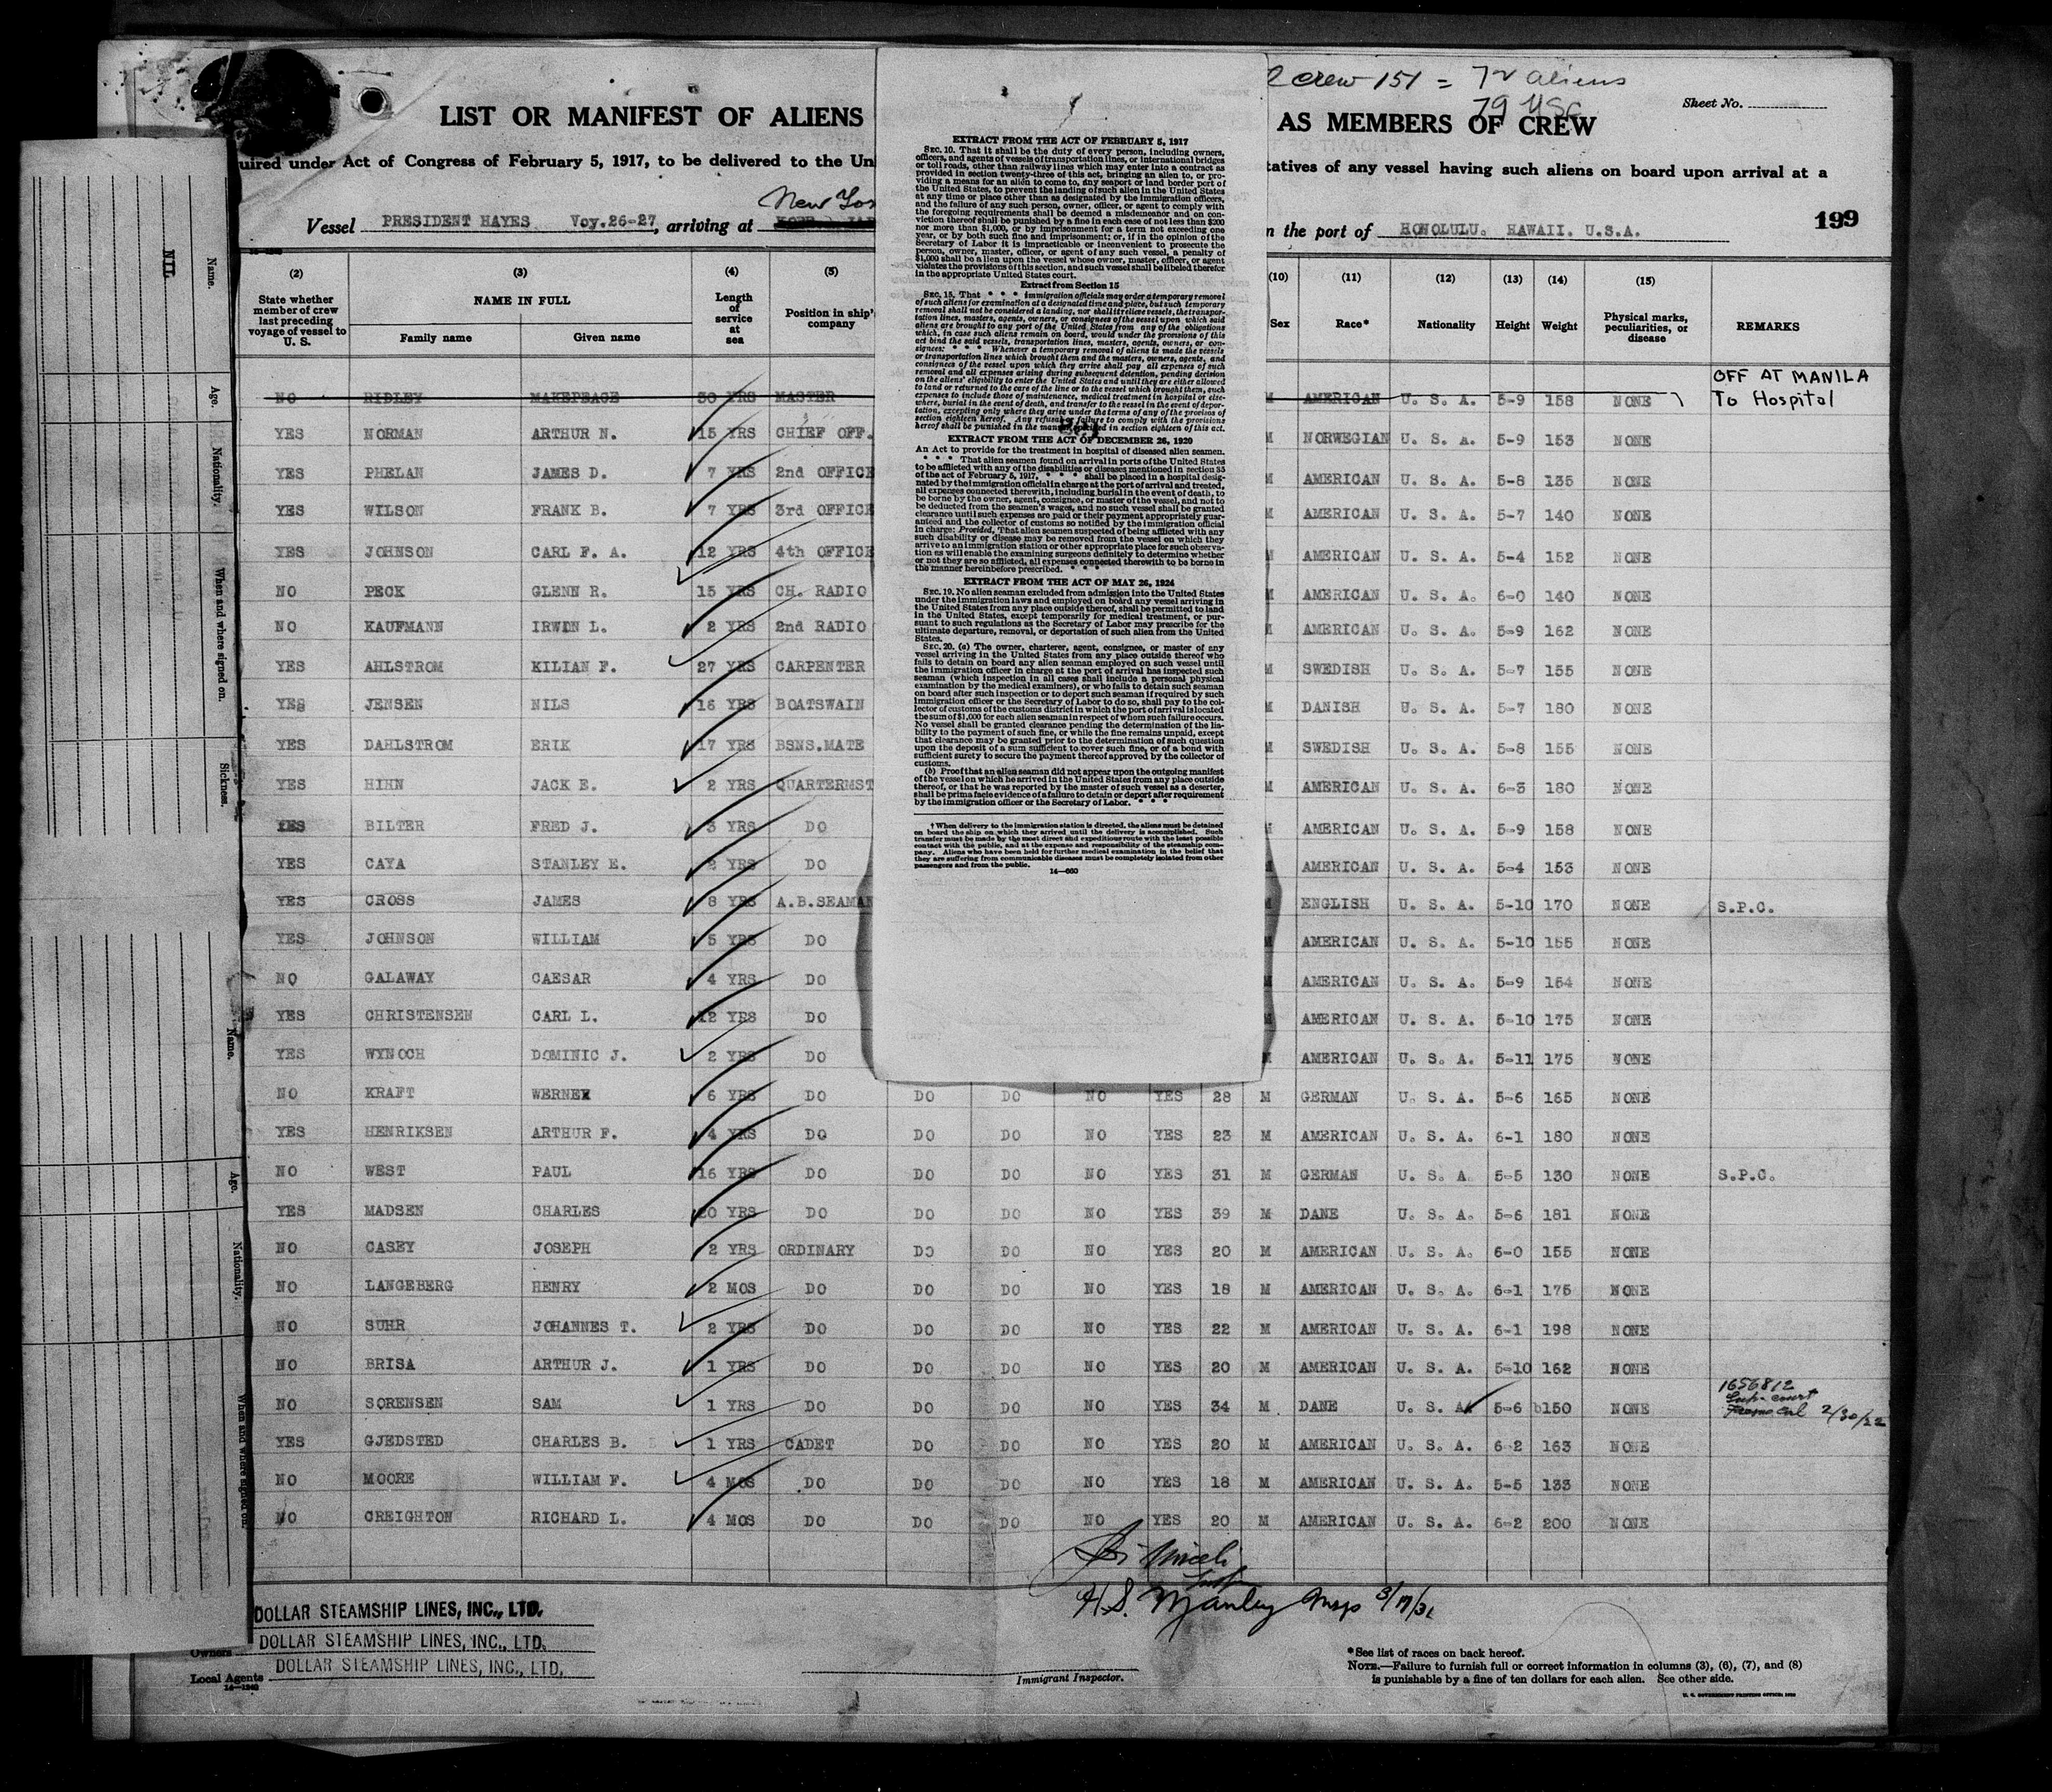 2 crew 151 = 72 aliens
79 USC
Sheet No.
LIST OR MANIFEST OF ALIENS
AS MEMBERS OF CREW
uired under Act of Congress of February 5, 1917, to be delivered to the Un
tatives of any vessel having such aliens on board upon arrival at a
New Yor
Vessel PRESIDENT HAYES Voy.26-27, arriving at KOBE. JAP
n the port of HONOLULU. HAWAII. U.S.A.
199
(2) (3) (4) (5) (10) (11) (12) (13) (14) (15)
State whether member of crew last preceding voyage of vessel to U. S. NAME IN FULL Family name Given name Length of service at sea Position in ship's company Sex Race* Nationality Height Weight Physical marks, peculiarities, or disease REMARKS
NO RIDLEY MAKEPEACE 30 YRS MASTER M AMERICAN U. S. A. 5-9 158 NONE OFF AT MANILA To Hospital
YES NORMAN ARTHUR N. 15 YRS CHIEF OFF. M NORWEGIAN U. S. A. 5-9 153 NONE
YES PHELAN JAMES D. 7 YRS 2nd OFFICE M AMERICAN U. S. A. 5-8 135 NONE
YES WILSON FRANK B. 7 YRS 3rd OFFICE M AMERICAN U. S. A. 5-7 140 NONE
YES JOHNSON CARL F. A. 12 YRS 4th OFFICE M AMERICAN U. S. A. 5-4 152 NONE
NO PECK GLENN R. 15 YRS CH. RADIO M AMERICAN U. S. A. 6-0 140 NONE
NO KAUFMANN IRWIN L. 2 YRS 2nd RADIO M AMERICAN U. S. A. 5-9 162 NONE
YES AHLSTROM KILIAN F. 27 YRS CARPENTER M SWEDISH U. S. A. 5-7 155 NONE
YES JENSEN NILS 16 YRS BOATSWAIN M DANISH U. S. A. 5-7 180 NONE
YES DAHLSTROM ERIK 17 YRS BSNS.MATE M SWEDISH U. S. A. 5-8 155 NONE
YES HIHN JACK E. 2 YRS QUARTERMST M AMERICAN U. S. A. 6-3 180 NONE
YES BILTER FRED J. 3 YRS DO M AMERICAN U. S. A. 5-9 158 NONE
YES CAYA STANLEY E. 2 YRS DO M AMERICAN U. S. A. 5-4 153 NONE
YES CROSS JAMES 8 YRS A.B.SEAMAN M ENGLISH U. S. A. 5-10 170 NONE S.P.C.
YES JOHNSON WILLIAM 5 YRS DO M AMERICAN U. S. A. 5-10 155 NONE
NO GALAWAY CAESAR 4 YRS DO M AMERICAN U. S. A. 5-9 154 NONE
YES CHRISTENSEN CARL L. 12 YRS DO M AMERICAN U. S. A. 5-10 175 NONE
YES WYNOCH DOMINIC J. 2 YRS DO M AMERICAN U. S. A. 5-11 175 NONE
NO KRAFT WERNER 6 YRS DO DO DO NO YES 28 M GERMAN U. S. A. 5-6 165 NONE
YES HENRIKSEN ARTHUR F. 4 YRS DO DO DO NO YES 23 M AMERICAN U. S. A. 6-1 180 NONE
NO WEST PAUL 16 YRS DO DO DO NO YES 31 M GERMAN U. S. A. 5-5 130 NONE S.P.C.
YES MADSEN CHARLES 20 YRS DO DO DO NO YES 39 M DANE U. S. A. 5-6 181 NONE
NO CASEY JOSEPH 2 YRS ORDINARY DO DO NO YES 20 M AMERICAN U. S. A. 6-0 155 NONE
NO LANGEBERG HENRY 2 MOS DO DO DO NO YES 18 M AMERICAN U. S. A. 6-1 175 NONE
NO SUHR JOHANNES T. 2 YRS DO DO DO NO YES 22 M AMERICAN U. S. A. 6-1 198 NONE
NO BRISA ARTHUR J. 1 YRS DO DO DO NO YES 20 M AMERICAN U. S. A. 5-10 162 NONE
NO SORENSEN SAM 1 YRS DO DO DO NO YES 34 M DANE U. S. A. 5-6 150 NONE 1656812 Supr. court Fresno Cal 2/30/22
YES GJEDSTED CHARLES B. 1 YRS CADET DO DO NO YES 20 M AMERICAN U. S. A. 6-2 163 NONE
NO MOORE WILLIAM F. 4 MOS DO DO DO NO YES 18 M AMERICAN U. S. A. 5-5 133 NONE
NO CREIGHTON RICHARD L. 4 MOS DO DO DO NO YES 20 M AMERICAN U. S. A. 6-2 200 NONE
H.S. Manley Insp 3/17/31
DOLLAR STEAMSHIP LINES, INC., LTD.
Owners DOLLAR STEAMSHIP LINES, INC., LTD.
Local Agents DOLLAR STEAMSHIP LINES, INC., LTD.
14—1240
Immigrant Inspector.
*See list of races on back hereof.
NOTE.—Failure to furnish full or correct information in columns (3), (6), (7), and (8)
is punishable by a fine of ten dollars for each alien. See other side.
EXTRACT FROM THE ACT OF FEBRUARY 5, 1917
SEC. 10. That it shall be the duty of every person, including owners,
officers, and agents of vessels of transportation lines, or international bridges
or toll roads, other than railway lines which may enter into a contract as
provided in section twenty-three of this act, bringing an alien to, or pro-
viding a means for an alien to come to, any seaport or land border port of
the United States, to prevent the landing of such alien in the United States
at any time or place other than as designated by the immigration officers,
and the failure of any such person, owner, officer, or agent to comply with
the foregoing requirements shall be deemed a misdemeanor and on con-
viction thereof shall be punished by a fine in each case of not less than $200
nor more than $1,000, or by imprisonment for a term not exceeding one
year, or by both such fine and imprisonment; or, if in the opinion of the
Secretary of Labor it is impracticable or inconvenient to prosecute the
person, owner, master, officer, or agent of any such vessel, a penalty of
$1,000 shall be a lien upon the vessel whose owner, master, officer, or agent
violates the provisions of this section, and such vessel shall be libeled therefor
in the appropriate United States court.
Extract from Section 15
SEC. 15. That * * * immigration officials may order a temporary removal
of such aliens for examination at a designated time and place, but such temporary
removal shall not be considered a landing, nor shall it relieve vessels, the transpor-
tation lines, masters, agents, owners, or consignees of the vessel upon which said
aliens are brought to any port of the United States from any of the obligations
which, in case such aliens remain on board, would under the provisions of this
act bind the said vessels, transportation lines, masters, agents, owners, or con-
signees: * * * Whenever a temporary removal of aliens is made the vessels
or transportation lines which brought them and the masters, owners, agents, and
consignees of the vessel upon which they arrive shall pay all expenses of such
removal and all expenses arising during subsequent detention, pending decision
on the aliens' eligibility to enter the United States and until they are either allowed
to land or returned to the care of the line or to the vessel which brought them, such
expenses to include those of maintenance, medical treatment in hospital or else-
where, burial in the event of death, and transfer to the vessel in the event of depor-
tation, excepting only where they arise under the terms of any of the provisos of
section eighteen hereof. Any refusal or failure to comply with the provisions
hereof shall be punished in the manner specified in section eighteen of this act.
EXTRACT FROM THE ACT OF DECEMBER 26, 1920
An Act to provide for the treatment in hospital of diseased alien seamen.
* * * That alien seamen found on arrival in ports of the United States
to be afflicted with any of the disabilities or diseases mentioned in section 35
of the act of February 5, 1917, * * * shall be placed in a hospital desig-
nated by the immigration official in charge at the port of arrival and treated,
all expenses connected therewith, including burial in the event of death, to
be borne by the owner, agent, consignee, or master of the vessel, and not to
be deducted from the seamen's wages, and no such vessel shall be granted
clearance until such expenses are paid or their payment appropriately guar-
anteed and the collector of customs so notified by the immigration official
in charge: Provided, That alien seamen suspected of being afflicted with any
such disability or disease may be removed from the vessel on which they
arrive to an immigration station or other appropriate place for such observa-
tion as will enable the examining surgeons definitely to determine whether
or not they are so afflicted, all expenses connected therewith to be borne in
the manner hereinbefore prescribed. * * *
EXTRACT FROM THE ACT OF MAY 26, 1924
SEC. 19. No alien seaman excluded from admission into the United States
under the immigration laws and employed on board any vessel arriving in
the United States from any place outside thereof, shall be permitted to land
in the United States, except temporarily for medical treatment, or pur-
suant to such regulations as the Secretary of Labor may prescribe for the
ultimate departure, removal, or deportation of such alien from the United
States.
SEC. 20. (a) The owner, charterer, agent, consignee, or master of any
vessel arriving in the United States from any place outside thereof who
fails to detain on board any alien seaman employed on such vessel until
the immigration officer in charge at the port of arrival has inspected such
seaman (which inspection in all cases shall include a personal physical
examination by the medical examiners), or who fails to detain such seaman
on board after such inspection or to deport such seaman if required by such
immigration officer or the Secretary of Labor to do so, shall pay to the col-
lector of customs of the customs district in which the port of arrival is located
the sum of $1,000 for each alien seaman in respect of whom such failure occurs.
No vessel shall be granted clearance pending the determination of the lia-
bility to the payment of such fine, or while the fine remains unpaid, except
that clearance may be granted prior to the determination of such question
upon the deposit of a sum sufficient to cover such fine, or of a bond with
sufficient surety to secure the payment thereof approved by the collector of
customs.
(b) Proof that an alien seaman did not appear upon the outgoing manifest
of the vessel on which he arrived in the United States from any place outside
thereof, or that he was reported by the master of such vessel as a deserter,
shall be prima facie evidence of a failure to detain or deport after requirement
by the immigration officer or the Secretary of Labor. * * *
† When delivery to the immigration station is directed, the aliens must be detained
on board the ship on which they arrived until the delivery is accomplished. Such
transfer must be made by the most direct and expeditious route with the least possible
contact with the public, and at the expense and responsibility of the steamship com-
pany. Aliens who have been held for further medical examination in the belief that
they are suffering from communicable diseases must be completely isolated from other
passengers and from the public.
14—660
NIL
Name.
Age.
Nationality.
When and where signed on.
Sickness.
Name.
Age.
Nationality.
When and where signed on.